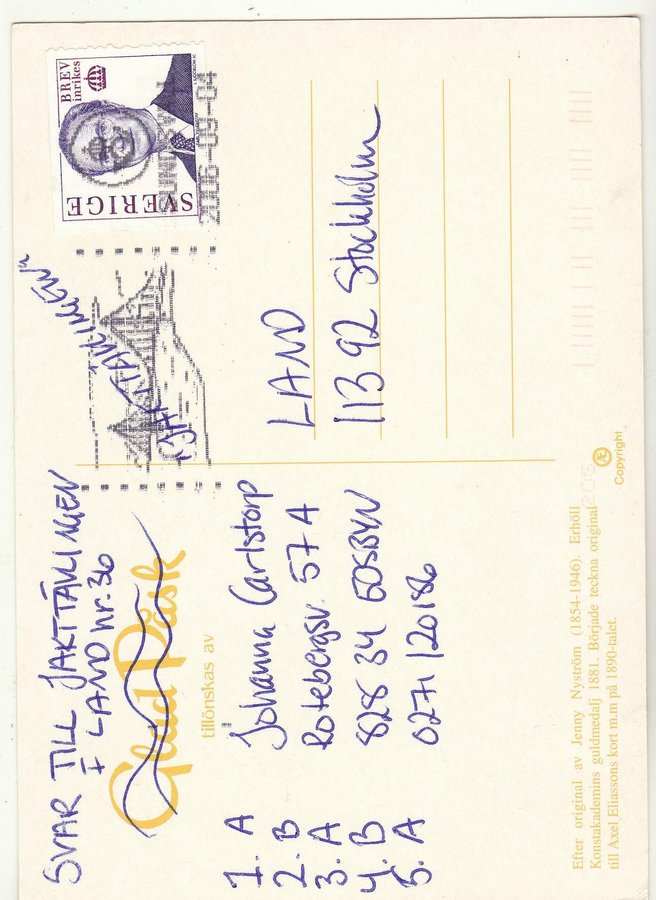 SVAR TILL JAKTTÄVLINGEN
I LAND nr. 36
Glad Påsk
tillönskas av
1. A
2. B
3. A
4. B
5. A
Johanna Carlstorp
Rotebergsv. 57 A
828 34 EDSBYN
0271/20186
"JAKTTÄVLINGEN"
BREV
inrikes
SVERIGE
2006-09-04
LAND
113 92 Stockholm
Efter original av Jenny Nyström (1854-1946). Erhöll
Konstakademins guldmedalj 1881. Började teckna original
till Axel Eliassons kort m.m på 1890-talet.
Æ
Copyright